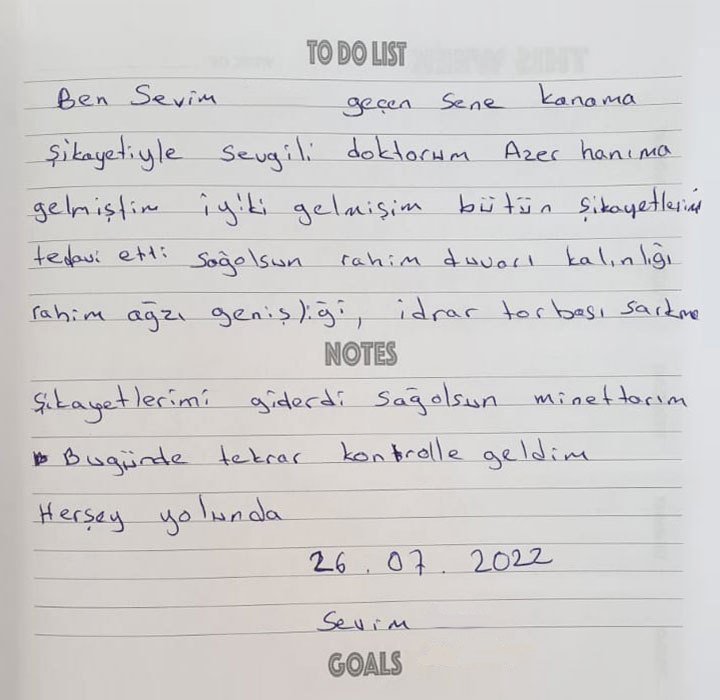 TO DO LIST
Ben Sevim geçen sene kanama
şikayetiyle sevgili doktorum Azer hanıma
gelmiştim iyiki gelmişim bütün şikayetlerimi
tedavi etti sağolsun rahim duvarı kalınlığı
rahim ağzı genişliği, idrar torbası sarkma
NOTES
Şikayetlerimi giderdi sağolsun minettarım
Bugünde tekrar kontrolle geldim
Herşey yolunda
26.07.2022
Sevim
GOALS